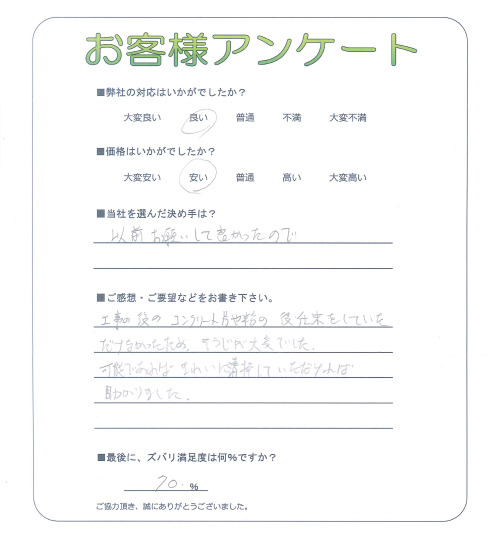 お客様アンケート
■弊社の対応はいかがでしたか？
大変良い 良い 普通 不満 大変不満
■価格はいかがでしたか？
大変安い 安い 普通 高い 大変高い
■当社を選んだ決め手は？
以前お願いして良かったので
■ご感想・ご要望などをお書き下さい。
工事の後のコンクリート片や粉の後仕末をしていた
だけなかったため、そうじが大変でした。
可能であればきれいに清掃していただければ
助かりました。
■最後に、ズバリ満足度は何%ですか？
70. %
ご協力頂き、誠にありがとうございました。